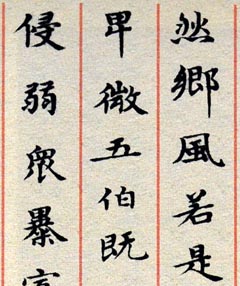 然鄉風若是
卑微五伯既
侵弱衆暴寡